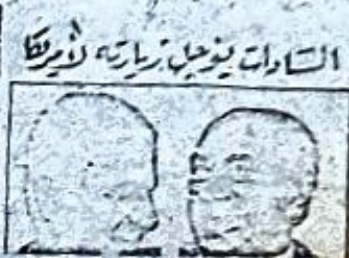 السادات يؤجل زيارته لأمريكا